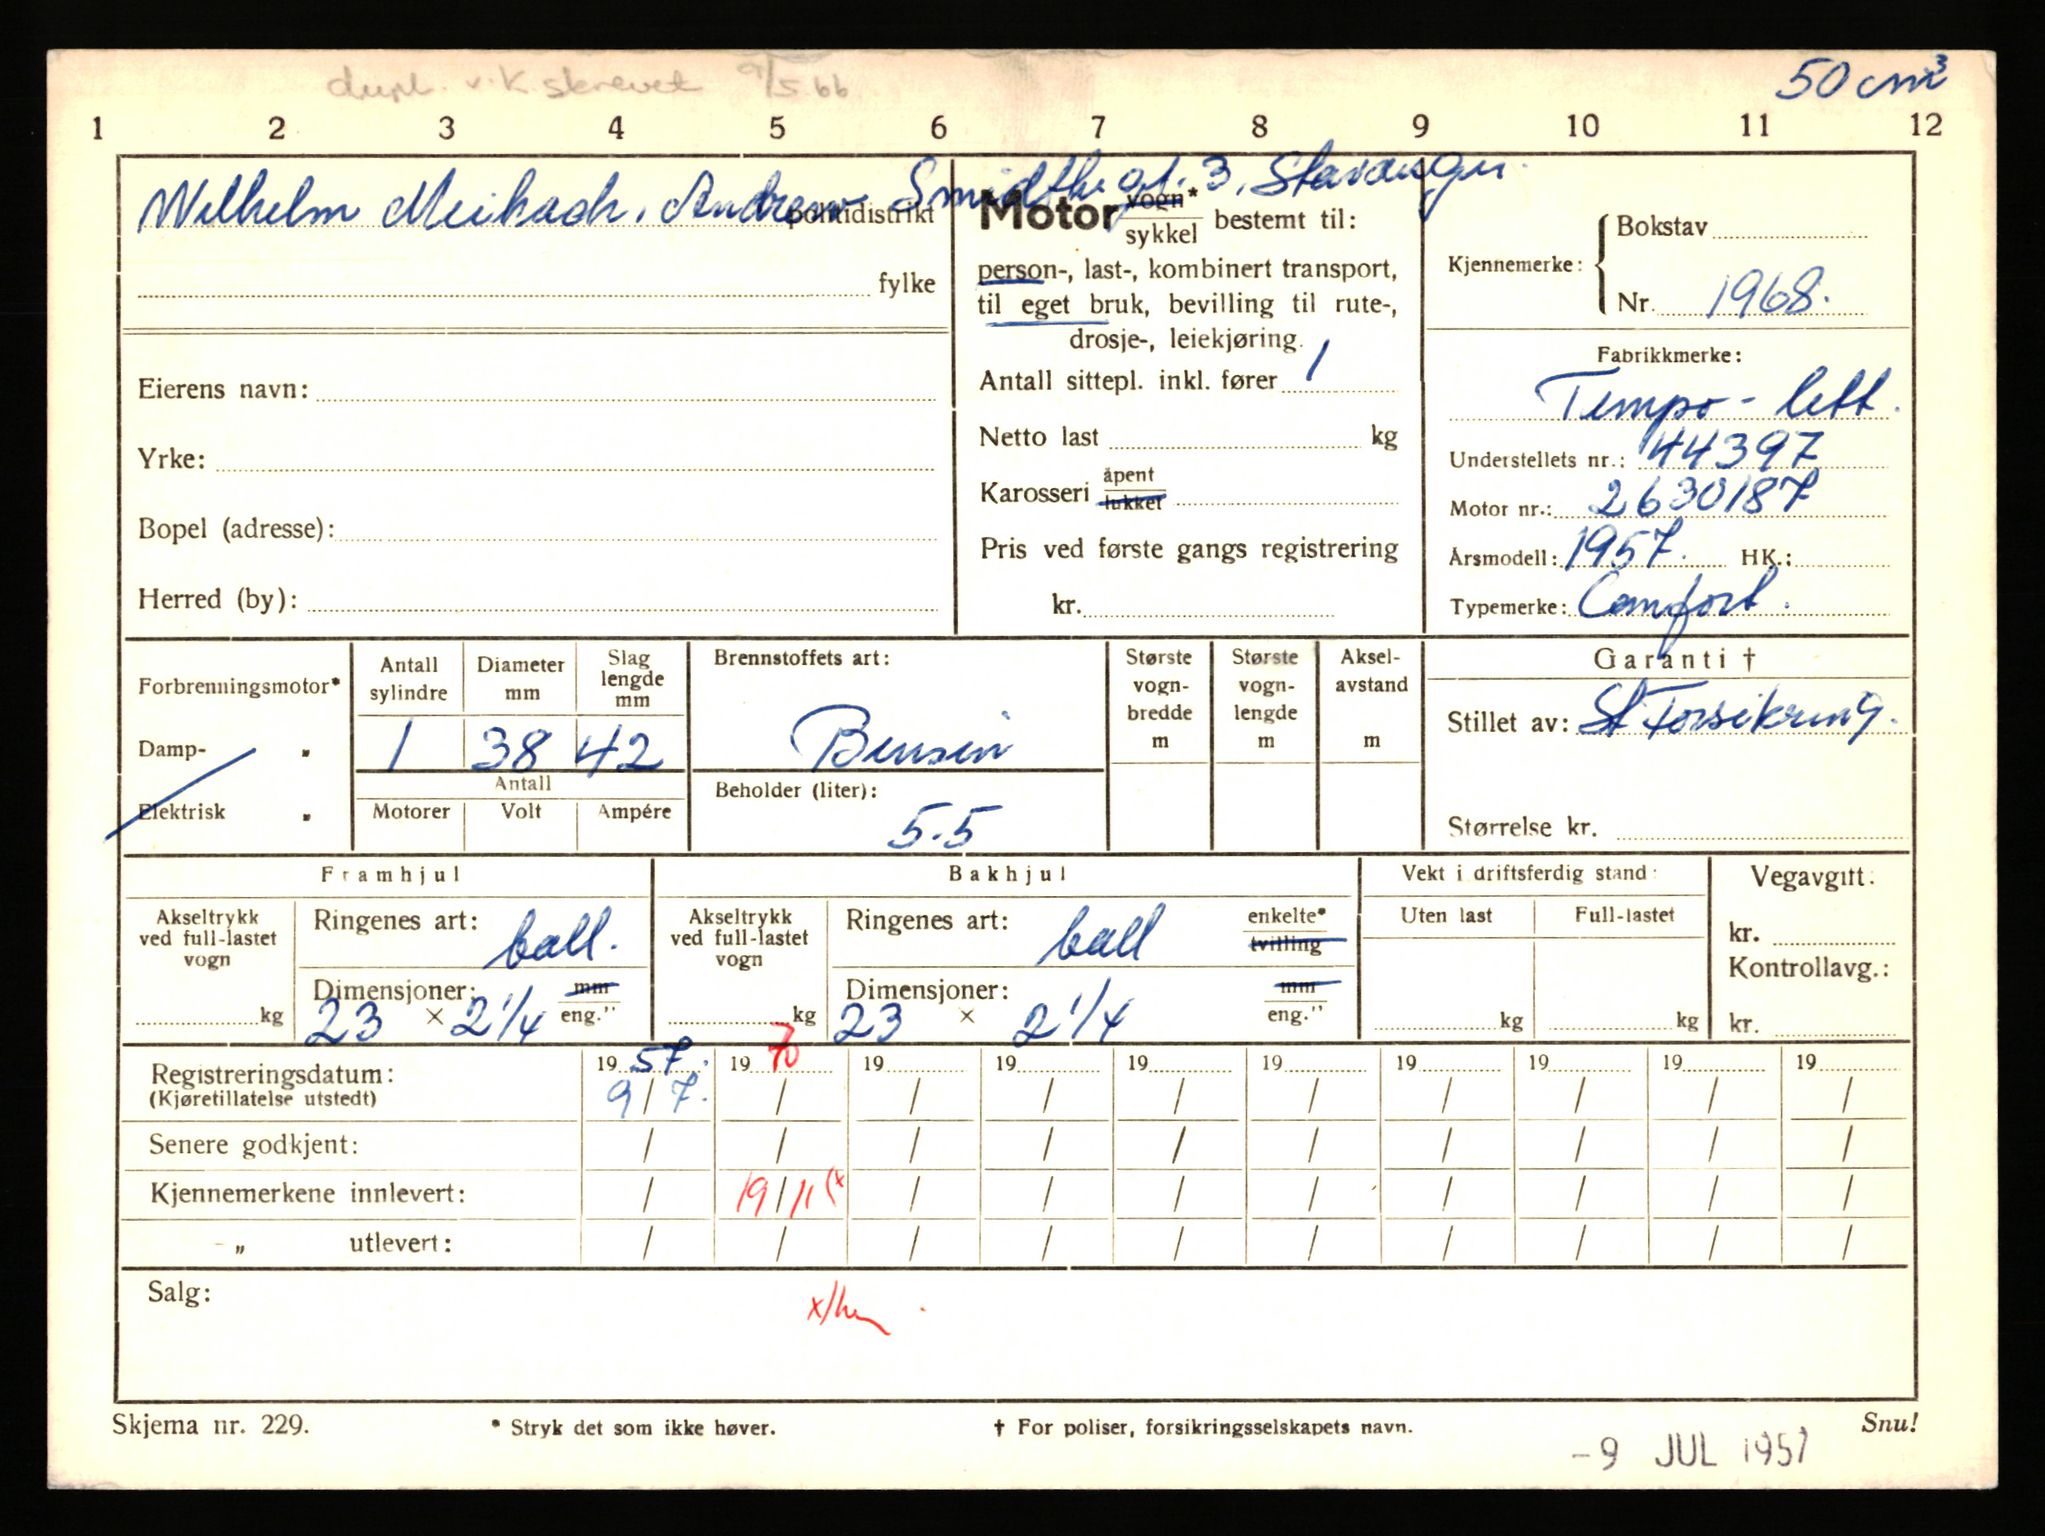 dupl. v. K. skrevet 9/5.66
50 cm³
1 2 3 4 5 6 7 8 9 10 11 12
Wilhelm Meibach, Andreas Smidthsgt. 3, Stavanger.
politidistrikt
fylke
Eierens navn:
Yrke:
Bopel (adresse):
Herred (by):
Motor vogn* sykkel bestemt til:
person-, last-, kombinert transport,
til eget bruk, bevilling til rute-,
drosje-, leiekjøring.
Antall sittepl. inkl. fører 1
Netto last kg
Karosseri åpent lukket
Pris ved første gangs registrering
kr.
Kjennemerke: Bokstav
Nr. 1968.
Fabrikkmerke:
Tempo - lett.
Understellets nr.: 144397
Motor nr.: 2630187
Årsmodell: 1957. HK.:
Typemerke: Comfort.
Forbrenningsmotor*
Damp- "
Elektrisk "
Antall sylindre Diameter mm Slag lengde mm
1 38 42
Antall
Motorer Volt Ampére
Brennstoffets art:
Bensin
Beholder (liter):
5.5
Største vogn- bredde m
Største vogn- lengde m
Aksel- avstand m
Garanti †
Stillet av: St Forsikring.
Størrelse kr.
Framhjul
Akseltrykk ved full-lastet vogn
kg
Ringenes art: ball.
Dimensjoner: mm
23 × 2 1/4 eng."
Bakhjul
Akseltrykk ved full-lastet vogn
kg
Ringenes art: ball enkelte* tvilling
Dimensjoner: mm
23 × 2 1/4 eng."
Vekt i driftsferdig stand:
Uten last Full-lastet
kg kg
Vegavgift:
kr.
Kontrollavg.:
kr.
Registreringsdatum: 19 57. 19 70 19 19 19 19 19 19 19 19
(Kjøretillatelse utstedt) 9 / 7. / / / / / / / / /
Senere godkjent: / / / / / / / / / /
Kjennemerkene innlevert: / 19 / 11 (x / / / / / / / /
" utlevert: / / / / / / / / / /
Salg:
Skjema nr. 229.
* Stryk det som ikke høver.
† For poliser, forsikringsselskapets navn.
Snu!
-9 JUL 1957